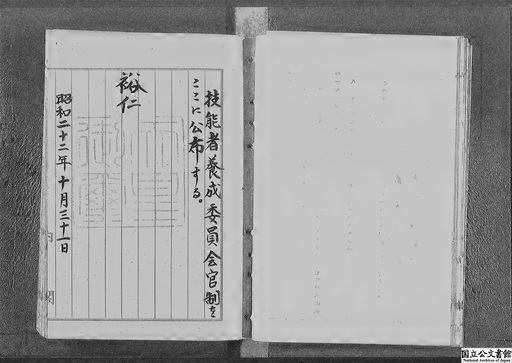 技能者養成委員会官制を
ここに公布する。
裕仁
昭和二十二年十月三十一日
内閣
国立公文書館
National Archives of Japan